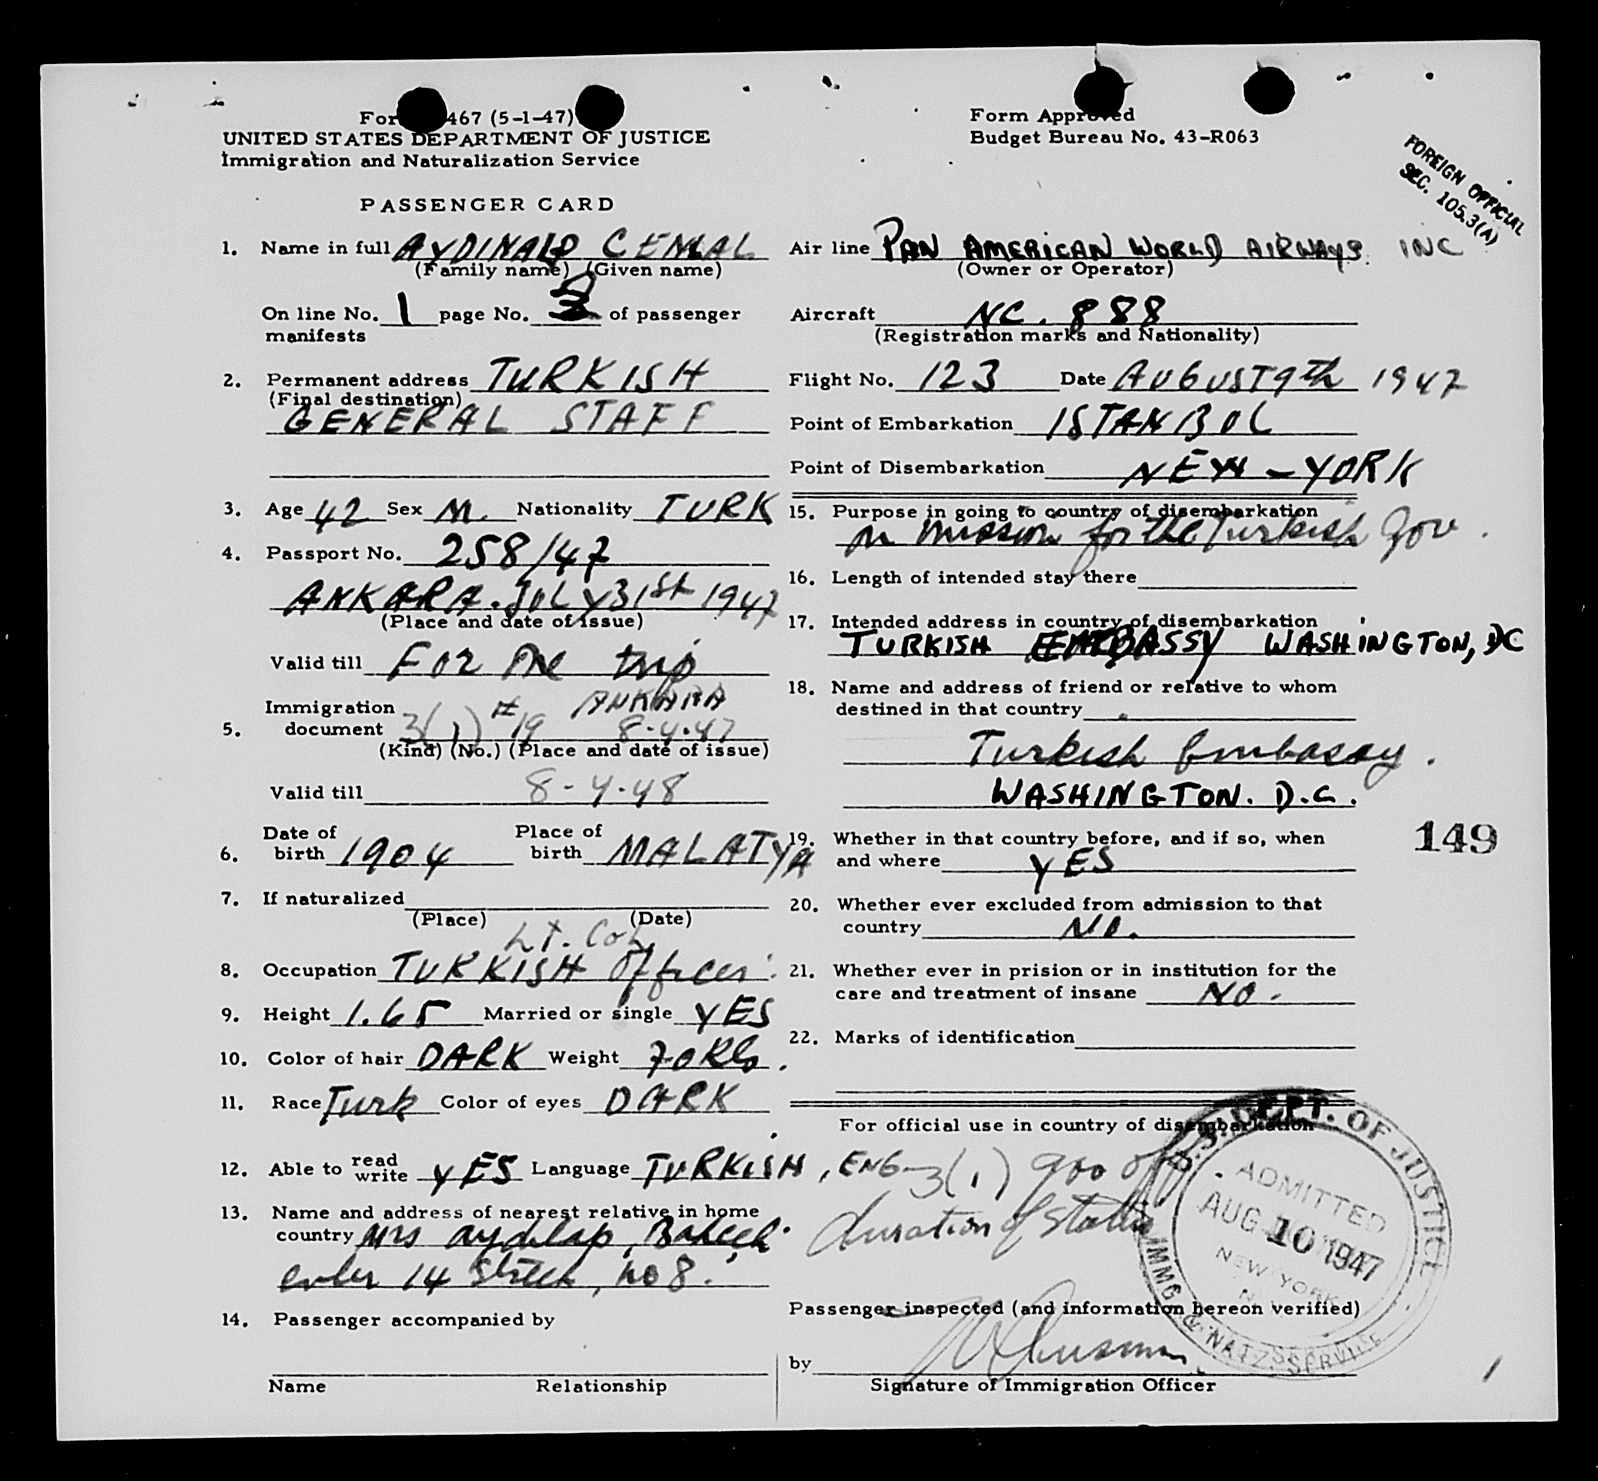 467 (5-1-47)
UNITED STATES DEPARTMENT OF JUSTICE
Immigration and Naturalization Service
PASSENGER CARD
Form Approved
Budget Bureau No. 43-R063
FOREIGN OFFICIAL
SEC. 105.3(A)
1. Name in full CEMAL
(Family name) (Given name)
On line No. 1 page No. of passenger
manifests
2. Permanent address TURKISH
(Final destination)
GENERAL STAFF
3. Age 42 Sex M. Nationality TURK
4. Passport No. 258/47
ANKARA. JULY 31st 1947
(Place and date of issue)
Valid till For the trip
Immigration # ANKARA
5. document 3(1) 19 8-4-47
(Kind) (No.) (Place and date of issue)
Valid till 8-4-48
6. Date of birth 1904 Place of birth MALATYA
7. If naturalized
(Place) (Date)
Lt. Col.
8. Occupation TURKISH Officer
9. Height 1.65 Married or single YES
10. Color of hair DARK Weight 70 Klo.
11. Race Turk Color of eyes DARK
12. Able to read write YES Language TURKISH, ENG
13. Name and address of nearest relative in home
country Mrs
14 no 8.
14. Passenger accompanied by
Name Relationship
Air line PAN AMERICAN WORLD AIRWAYS. INC
(Owner or Operator)
Aircraft NC. 888
(Registration marks and Nationality)
Flight No. 123 Date AUGUST 9th 1947
Point of Embarkation ISTANBUL
Point of Disembarkation NEW-YORK
15. Purpose in going to country of disembarkation
on mission for the Turkish Gov.
16. Length of intended stay there
17. Intended address in country of disembarkation
TURKISH EMBASSY WASHINGTON, DC
18. Name and address of friend or relative to whom
destined in that country
Turkish Embassy.
WASHINGTON. D.C.
19. Whether in that country before, and if so, when
and where YES
149
20. Whether ever excluded from admission to that
country NO.
21. Whether ever in prision or in institution for the
care and treatment of insane NO.
22. Marks of identification
For official use in country of disembarkation
3(1) gov off.
duration of status
U.S. DEPT. OF JUSTICE
ADMITTED
AUG 10 1947
NEW YORK
N.Y.
IMMG. & NATZ. SERVICE
Passenger inspected (and information hereon verified)
by
Signature of Immigration Officer